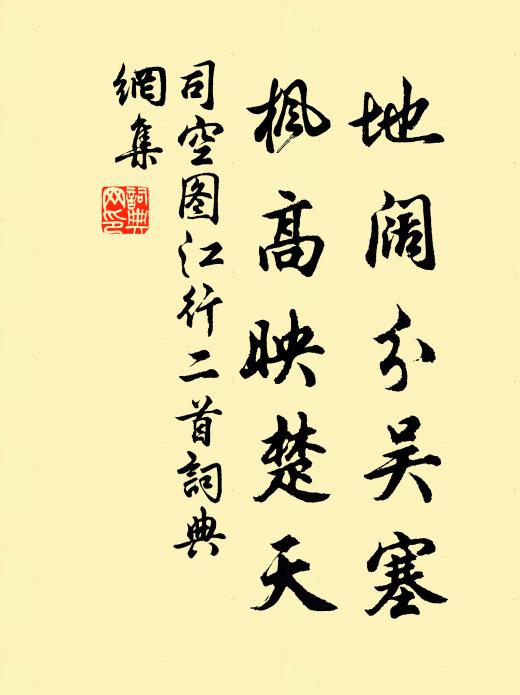 地阔分吴塞
枫高映楚天
司空图江行二首詞典
網集
詞典
网印